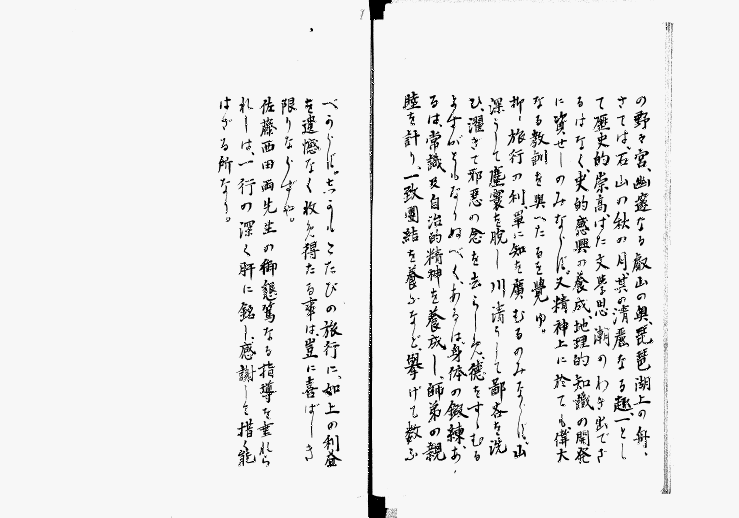 の野々宮、幽邃なる叡山の奥、琵琶湖上の舟、
さては石山の秋の月、其の清麗なる趣、一とし
て歴史的崇高、はた文学思潮のわき出でざ
るはなく、史的感興の養成、地理的知識の開発
に資せしのみならず、又精神上に於ても、偉大
なる教訓を与へたるを覚ゆ。
抑々旅行の利、単に知を広むるのみならず、山
深うして塵襟を脱し、川清うして鄙吝を洗
ひ、濯ぎて邪悪の念を去らしめ、徳をすゝむる
よすがともなりぬべく、あるは身体の鍛練、お
るは、常識及自治的精神を養成し、師弟の親
睦を計り、一致団結を養ふなど、挙げて数ふ
べからず。然るに こたびの旅行に、如上の利益
を遺憾なく収め得たる事は、豈に喜ばしき
限りならずや。
佐藤西田両先生の御懇篤なる指導を垂れら
れしは、一行の深く肝に銘し、感謝して措く能
はざる所なり。